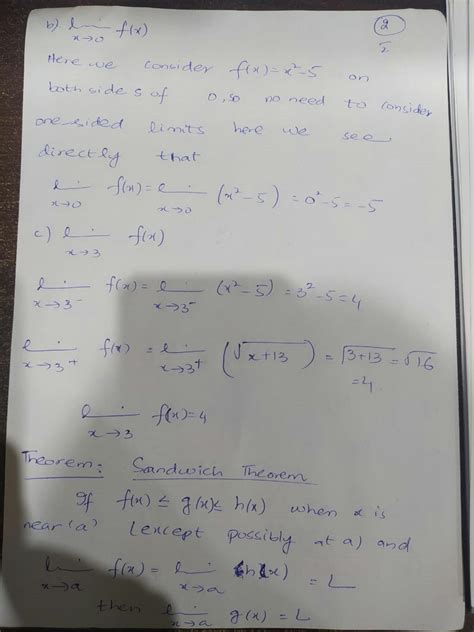 2
2
b) lim f(x)
x→0
Here we consider f(x)=x²-5 on
both sides of 0, so no need to consider
one-sided limits here we see
directly that
lim f(x) = lim (x²-5) = 0²-5 = -5
x→0 x→0
c) lim f(x)
x→3
lim f(x) = lim (x²-5) = 3²-5 = 4
x→3⁻ x→3⁻
lim f(x) = lim (√x+13) = √3+13 = √16
x→3⁺ x→3⁺ =4.
lim f(x)=4
x→3
Theorem: Sandwich Theorem
If f(x) ≤ g(x) ≤ h(x) when x is
near 'a' (except possibly at a) and
lim f(x) = lim h(x) = L
x→a x→a
then lim g(x) = L
x→a